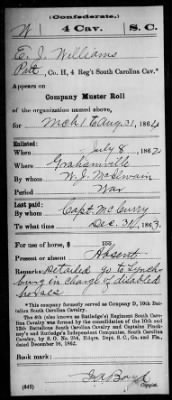 (Confederate.)
W 4 Cav. S.C.
E. J. Williams
Pvt, Co. H, 4 Reg't South Carolina Cav.*
Appears on
Company Muster Roll
of the organization named above,
for Mch 1 to Aug 31, 1864
Enlisted:
When July 8, 1862
Where Grahamville
By whom W. J. McIlwain
Period War
Last paid:
By whom Capt. McCurry
To what time Dec. 31, 1863
For use of horse, $ 100
Present or absent Absent
Remarks: Detailed to go to Lynch-
burg in charge of disabled
horses
*This company formerly served as Company D, 10th Bat-
talion South Carolina Cavalry.
The 4th (also known as Rutledge's) Regiment South Caro-
lina Cavalry was formed by the consolidation of the 10th and
12th Battalions South Carolina Cavalry and Captains Pinck-
ney's and Rutledge's Independent Companies, South Carolina
Cavalry, by S. O. No. 254, Hdqrs. Dept. S. C., Ga. and Fla.,
dated December 16, 1862.
Book mark:
(642) Boyd
Copyist.